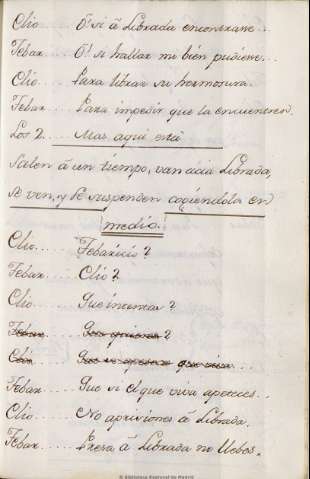 Clio.... O! si á Librada encontrase...
Febax... O! si hallar mi bien pudiese...
Clio.... Para librar su hermosura.
Febax... Para impedir que la encuentren.
Los 2.... Mas aqui está
Salen á un tiempo, van ácia Librada,
se ven, y se suspenden cogiéndola en
medio.
Clio.... Febaricio?
Febax..... Clio?
Clio..... Que intentas?
Febax..... Que quieres?
Clio..... Que no
Febax..... Que si el que viva apeteces..
Clio..... No aprisiones á Librada.
Febax..... Presa á Librada no lleves.
© Biblioteca Nacional de Madrid